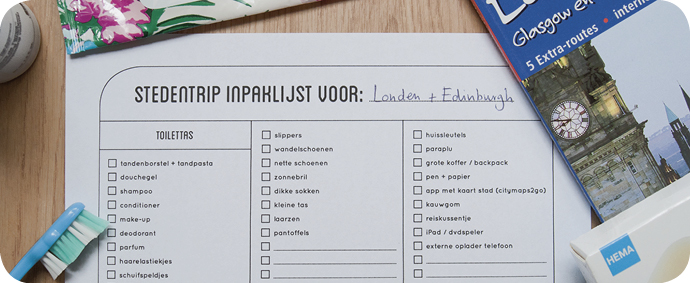 Glasgow en
5 Extra-routes • intern
STEDENTRIP INPAKLIJST VOOR: Londen + Edinburgh
TOILETTAS
tandenborstel + tandpasta
douchegel
shampoo
conditioner
make-up
deodorant
parfum
haarelastiekjes
schuifspeldjes
slippers
wandelschoenen
nette schoenen
zonnebril
dikke sokken
kleine tas
laarzen
pantoffels
huissleutels
paraplu
grote koffer / backpack
pen + papier
app met kaart stad (citymaps2go)
kauwgom
reiskussentje
iPad / dvdspeler
externe oplader telefoon
HEMA